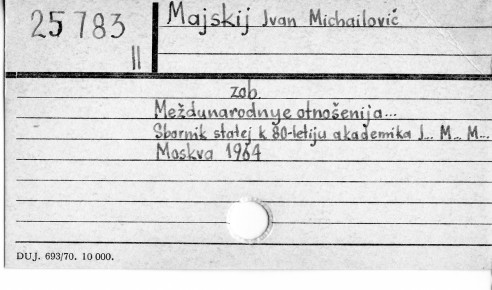 25 783
II
Majskij Ivan Michailovič
zob.
Meždunarodnye otnošenija...
Sbornik statej k 80-letiju akademika I... M... M...
Moskva 1964
DUJ. 693/70. 10 000.